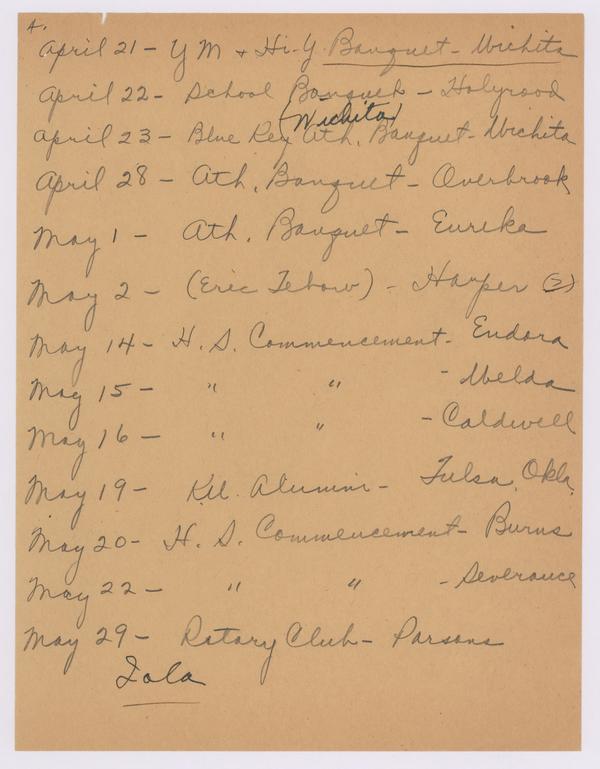 4.
April 21 - Y M + Hi-Y Banquet - Wichita
April 22 - School Banquet - Holyrood
(Wichita)
April 23 - Blue Key Ath. Banquet - Wichita
April 28 - Ath. Banquet - Overbrook
May 1 - Ath. Banquet - Eureka
May 2 - (Eric Tebow) - Harper (2)
May 14 - H. S. Commencement - Eudora
May 15 - " " - Melda
May 16 - " " - Caldwell
May 19 - K.U. Alumni - Tulsa, Okla.
May 20 - H. S. Commencement - Burns
May 22 - " " - Severance
May 29 - Rotary Club - Parsons
Iola